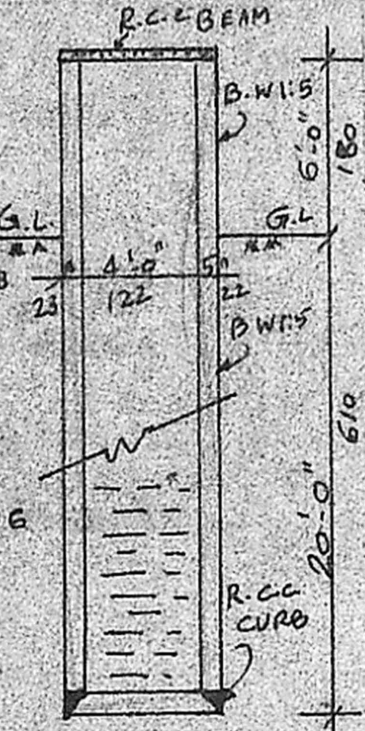 R.C.C BEAM
B.W1:5
6'-0"
180
G.L.
G.L
4'-0"
5"
23
122
22
B W1:5
610
6
20'-0"
R.C.C.
CURB